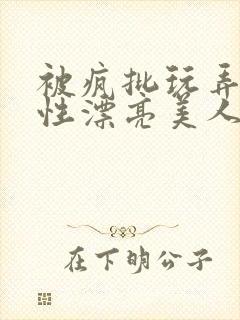 被疯批玩弄
性漂亮美人
在下明公子